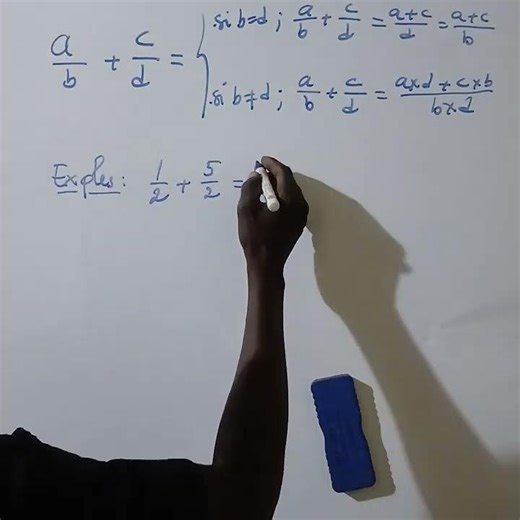 si b=d ; a/b + c/d = a+c/d = a+c/b
a/b + c/d = {
si b≠d ; a/b + c/d = a×d + c×b/b×d
Exples : 1/2 + 5/2 =